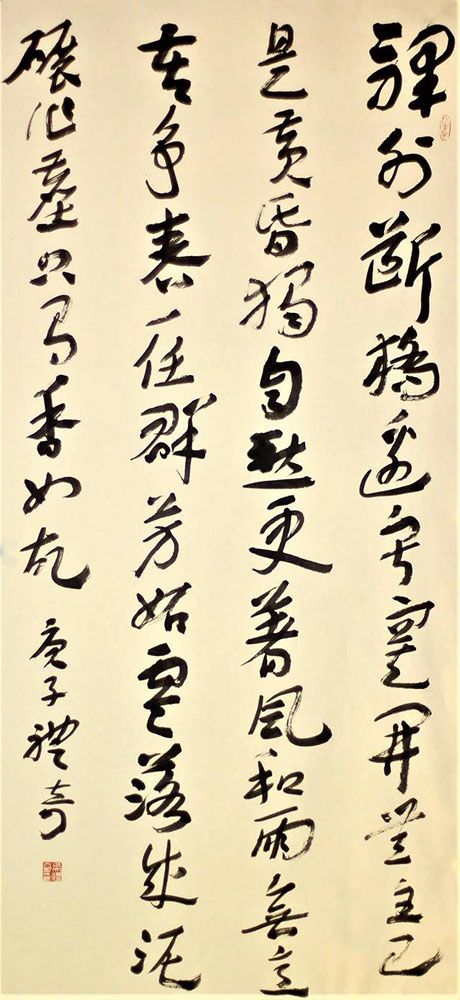 驛外斷橋邊寂寞開無主已
是黃昏獨自愁更著風和雨無意
苦爭春一任群芳妬零落成泥
碾作塵只有香如故 庚子禮奇